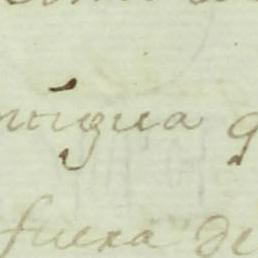 ntigua q
fuera de